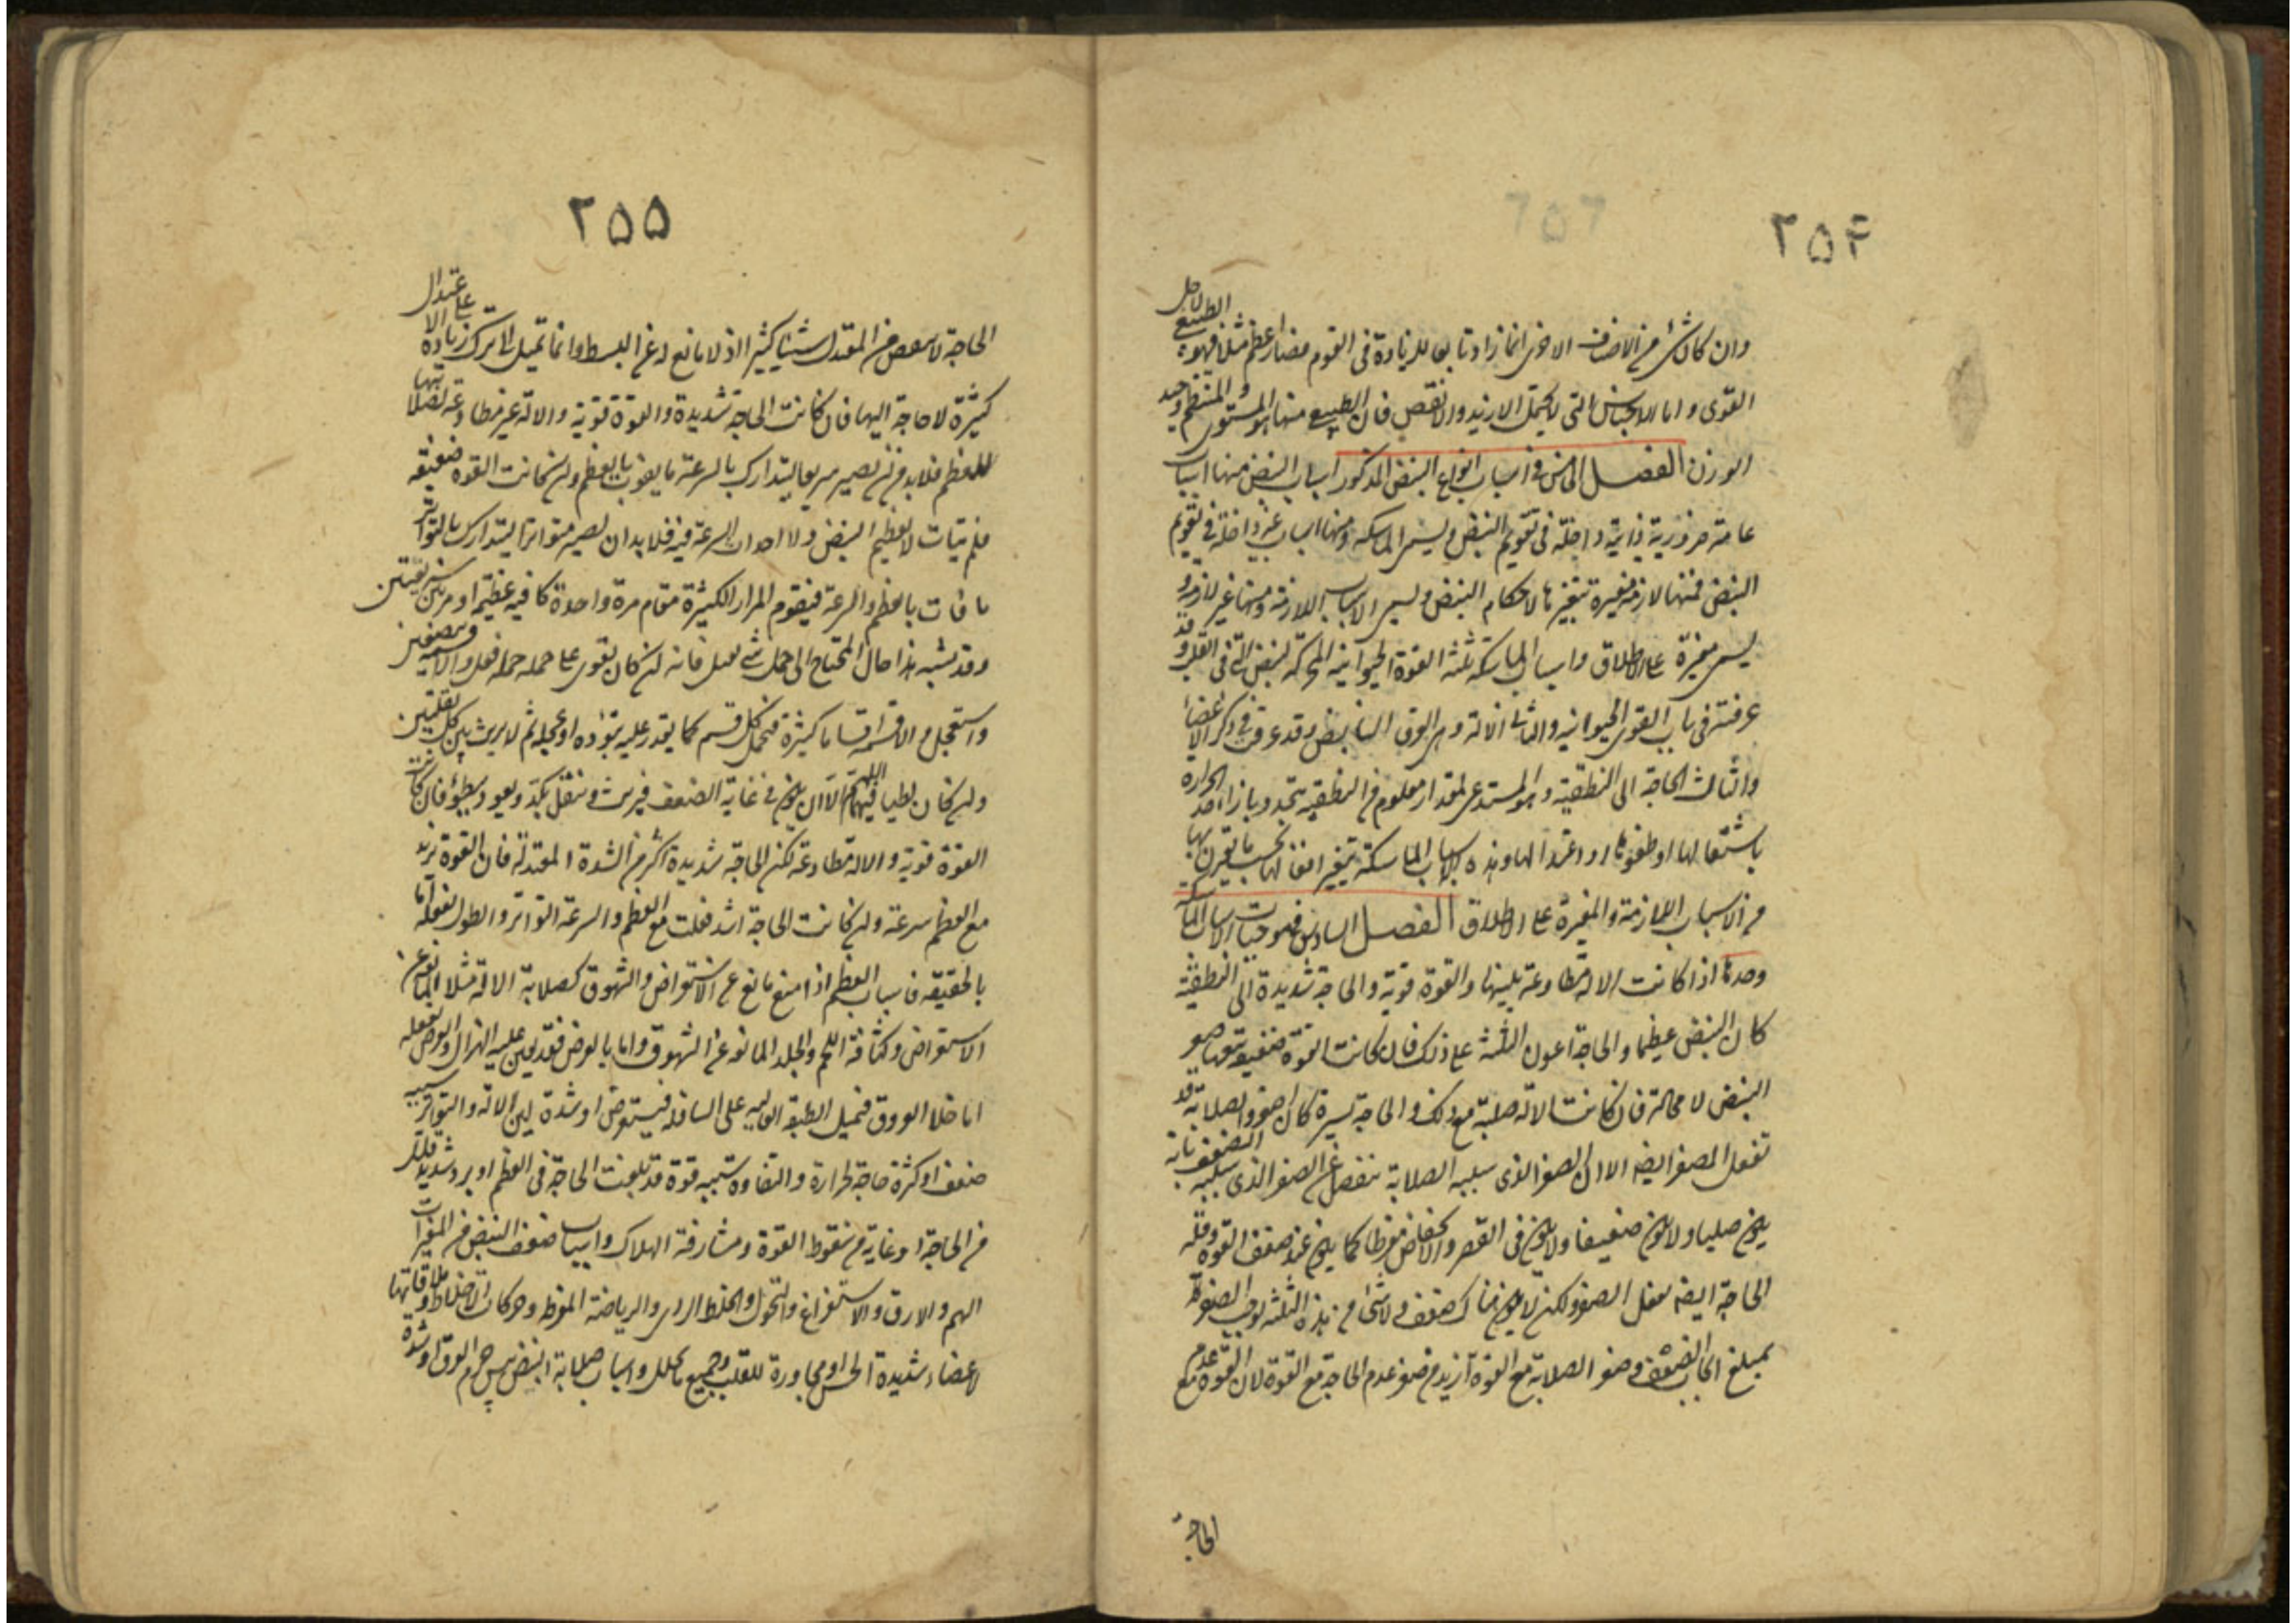 ٢٥٤
وان كان شئ من الاصناف الاخرى انما زاد تابعا للزيادة فى القوة فصار اعظم مثلا فهو الطبيعى لاجل
القوى واما الاجناس التى لا يحتمل الازيد والانقص فان الطبيعى منها هو المستوى والمنتظم وجيد
الوزن الفصل الخامس فى اسباب انواع النبض المذكورة اسباب النبض منها اسباب
عامة ضرورية ذاتية داخلة فى تقويم النبض ويسمى الماسكة ومنها اسباب غير داخلة فى تقويم
النبض فمنها لازمة مغيرة بتغيرها لاحكام النبض ويسمى الاسباب اللازمة ومنها غير لازمة و
يسمى مغيرة على الاطلاق واسباب الماسكة ثلثة القوة الحيوانية المحركة للنبض التى فى القلب وقد
عرفتها فى باب القوى الحيوانية والثانى الالة وهى العروق النابض وقد عرفتها فى ذكر الاعضاء
والثالث الحاجة الى التطفية وهو المستدعى لمقدار معلوم من التطفية يتجدد بازاء حد الحرارة
باشتعالها او طفوها او اعتدالها وهذه الاسباب الماسكة يتغير افعالها بحسب ما يقترن بها
من الاسباب اللازمة والمغيرة على الاطلاق الفصل السادس فى موجبات الاسباب الماسكة
وحدها اذا كانت الالة مطاوعة بلينها والقوة قوية والحاجة شديدة الى التطفية
كان النبض عظيما والحاجة اعون الثلثة على ذلك فان كانت القوة ضعيفة تبعها صغر
النبض لا محالة فان كانت الالة صلبة مع ذلك والحاجة يسيرة كان اصغر والصلابة قد
تفعل الصغر ايضا الا ان الصغر الذى سببه الصلابة ينفصل عن الصغر الذى سببه الضعف بانه
يكون صلبا ولا يكون ضعيفا ولا يكون فى القصر والانخفاض مفرطا كما يكون عند ضعف القوة وقلة
الحاجة ايضا يفعل الصغر ولكن لا يكون هناك ضعف ولا شئ من هذه الثلثة يوجب الصغر
بمبلغ ايجاب الضعف وصغر الصلابة مع القوة ازيد من صغر عدم الحاجة مع القوة لان القوة مع عدم
الحاجة
٢٥٥
الحاجة لا ينقص من المعتدل شيئا كثيرا اذ لا مانع له عن البسط وانما يميل الى ترك زيادة على الاعتدال
كثيرة لا حاجة اليها فان كانت الحاجة شديدة والقوة قوية والالة غير مطاوعة لصلابتها
للعظم فلابد من ان يصير سريعا ليتدارك بالسرعة ما يفوت بالعظم وان كانت القوة ضعيفة
فلم يتات لا تعظيم النبض ولا احداث السرعة فيه فلابد ان يصير متواترا ليتدارك بالتواتر
ما فات بالعظم والسرعة فيقوم المرار الكثيرة مقام مرة واحدة كافية عظيمة او مرتين سريعتين
وقد يشبه هذا حال المحتاج الى حمل شئ ثقيل فانه ان كان يقوى على حمله جملة فعل والا قسمه بنصفين
واستعجل والا قسمه اقساما كثيرة فيحمل كل قسم كما يقدر عليه بتؤدة او عجلة ثم لا يريث بين كل نقلتين
وان كان بطيئا فيهما اللهم الا ان يكون فى غاية الضعف فيريث وينقل بكد ويعود ببطؤ فان كانت
القوة قوية والالة مطاوعة لكن الحاجة شديدة اكثر من الشدة المعتدلة فان القوة تزيد
مع العظم سرعة وان كانت الحاجة اشد فعلت مع العظم والسرعة التواتر والطول يفعله اما
بالحقيقة فاسباب العظم اذا منع مانع عن الاستعراض والشهوق كصلابة الالة مثلا المانعة عن
الاستعراض وكثافة اللحم والجلد المانعة عن الشهوق واما بالعرض فقد يعين عليه الهزال والعرض يفعله
اما خلا العروق فيميل الطبقة العالية على السافلة فيستعرض او شدة لين الالة والتواتر سببه
ضعف او كثرة حاجة لحرارة والتفاوت سببه قوة قد بلغت الحاجة فى العظم او برد شديد قلل
من الحاجة او غاية من سقوط القوة ومشارفة الهلاك واسباب ضعف النبض من المغيرات
الهم والارق والاستفراغ والتحول والخلط الردى والرياضة المفرطة وحركات الاخلاط وملاقاتها
لاعضاء شديدة الحس او مجاورة للقلب وجميع ما يحلل واسباب صلابة النبض يبس جرم العرق او شدة